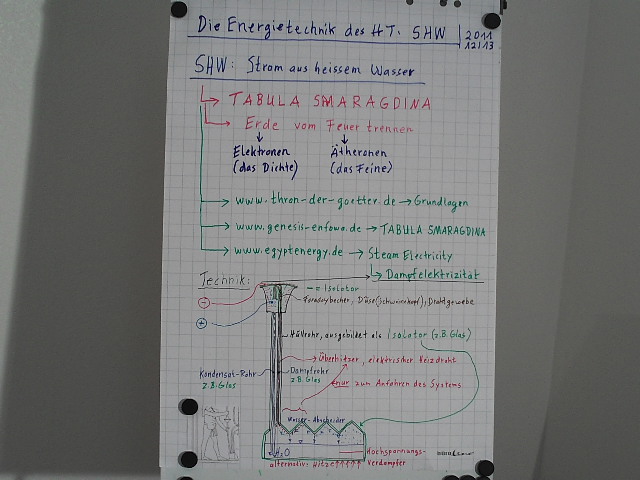 Die Energietechnik des HT. SHW
2011
12/13
SHW: Strom aus heissem Wasser
TABULA SMARAGDINA
Erde vom Feuer trennen
Elektronen
(das Dichte)
Ätheronen
(das Feine)
www.thron-der-goetter.de → Grundlagen
www.genesis-enfowa.de → TABULA SMARAGDINA
www.egyptenergy.de → Steam Electricity
Dampfelektrizität
Technik:
- = Isolator
Faradaybecher, Düse (Schweinekopf); Drahtgewebe
Hüllrohr, ausgebildet als Isolator (z.B. Glas)
Überhitzer, elektrischer Heizdraht
Kondensat-Rohr
z.B. Glas
Dampfrohr
z.B. Glas
nur zum Anfahren des Systems
Wasser-Abscheider
H2O
Hochspannungs-
Verdampfer
alternativ: Hitze